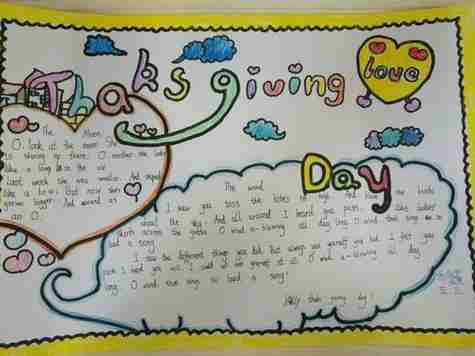 Thaksgiving
love
Day
The Moon
O, look at the moon She
is shining up there; O mother she looks
like a lamp in the air
Last week she was smaller. And shaped
like a bow; But now she's
grown bigger. And round as
an O.
The wind
I saw you toss the kites on high And blow the birds
about the sky; And all around I heard you pass. Like ladies'
skirts across the grass O wind a-blowing all day long O wind that sings so
loud a song
I saw the different things you did. But always you yourself you hid I felt you
push I heard you call I could not see yourself at all O wind a-blowing all day
long O wind that sings so loud a song!
Happy thanks giving day!